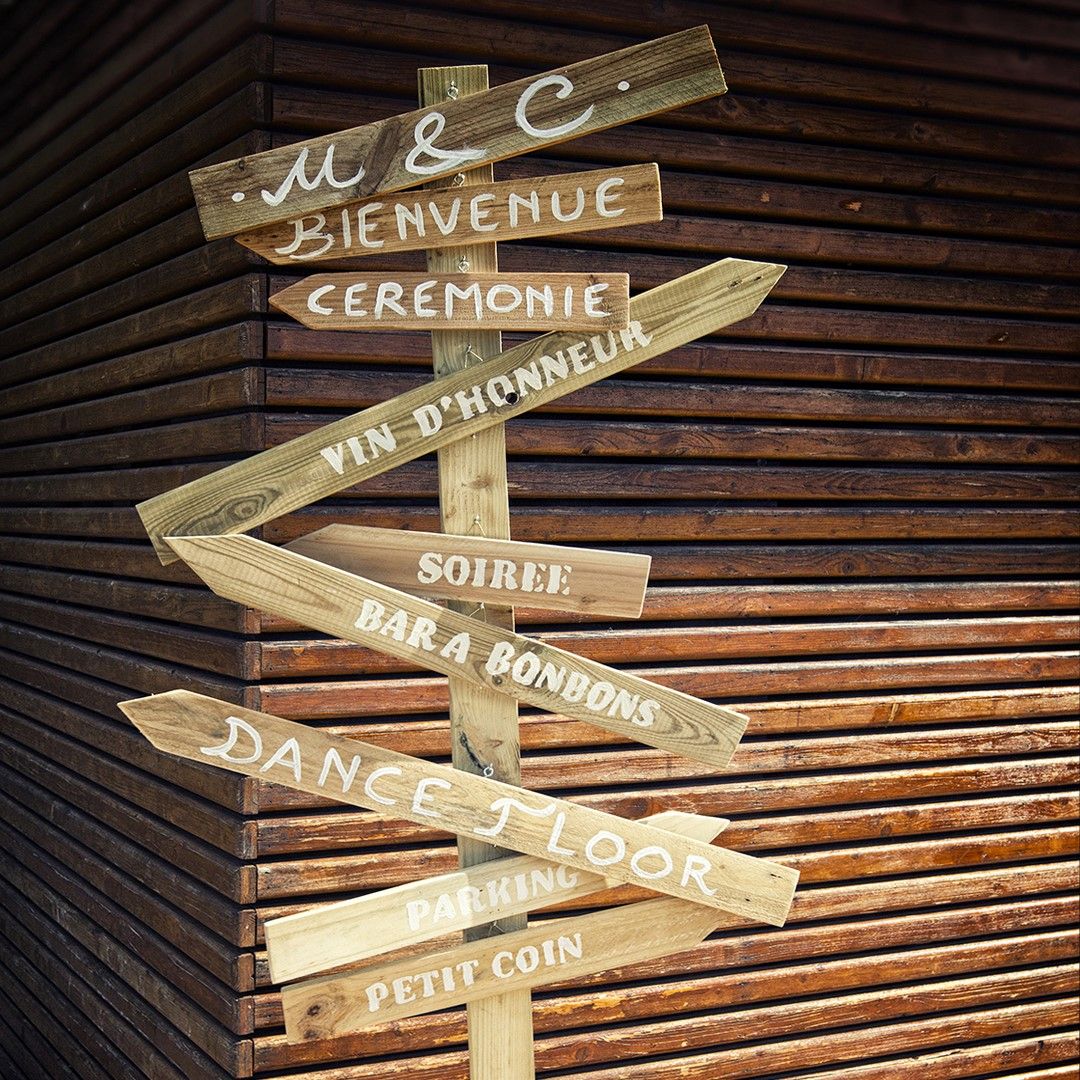 . M & C .
BIENVENUE
CEREMONIE
VIN D'HONNEUR
SOIREE
BAR A BONBONS
DANCE FLOOR
PARKING
PETIT COIN